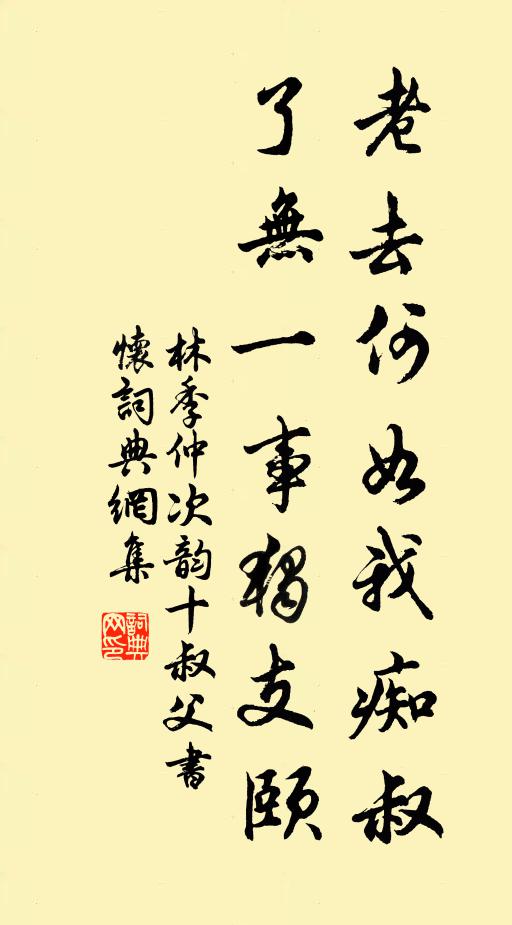 老去何如我痴叔
了無一事獨支頤
林季仲次韵十叔父書
懷詞典網集
詞典
网印